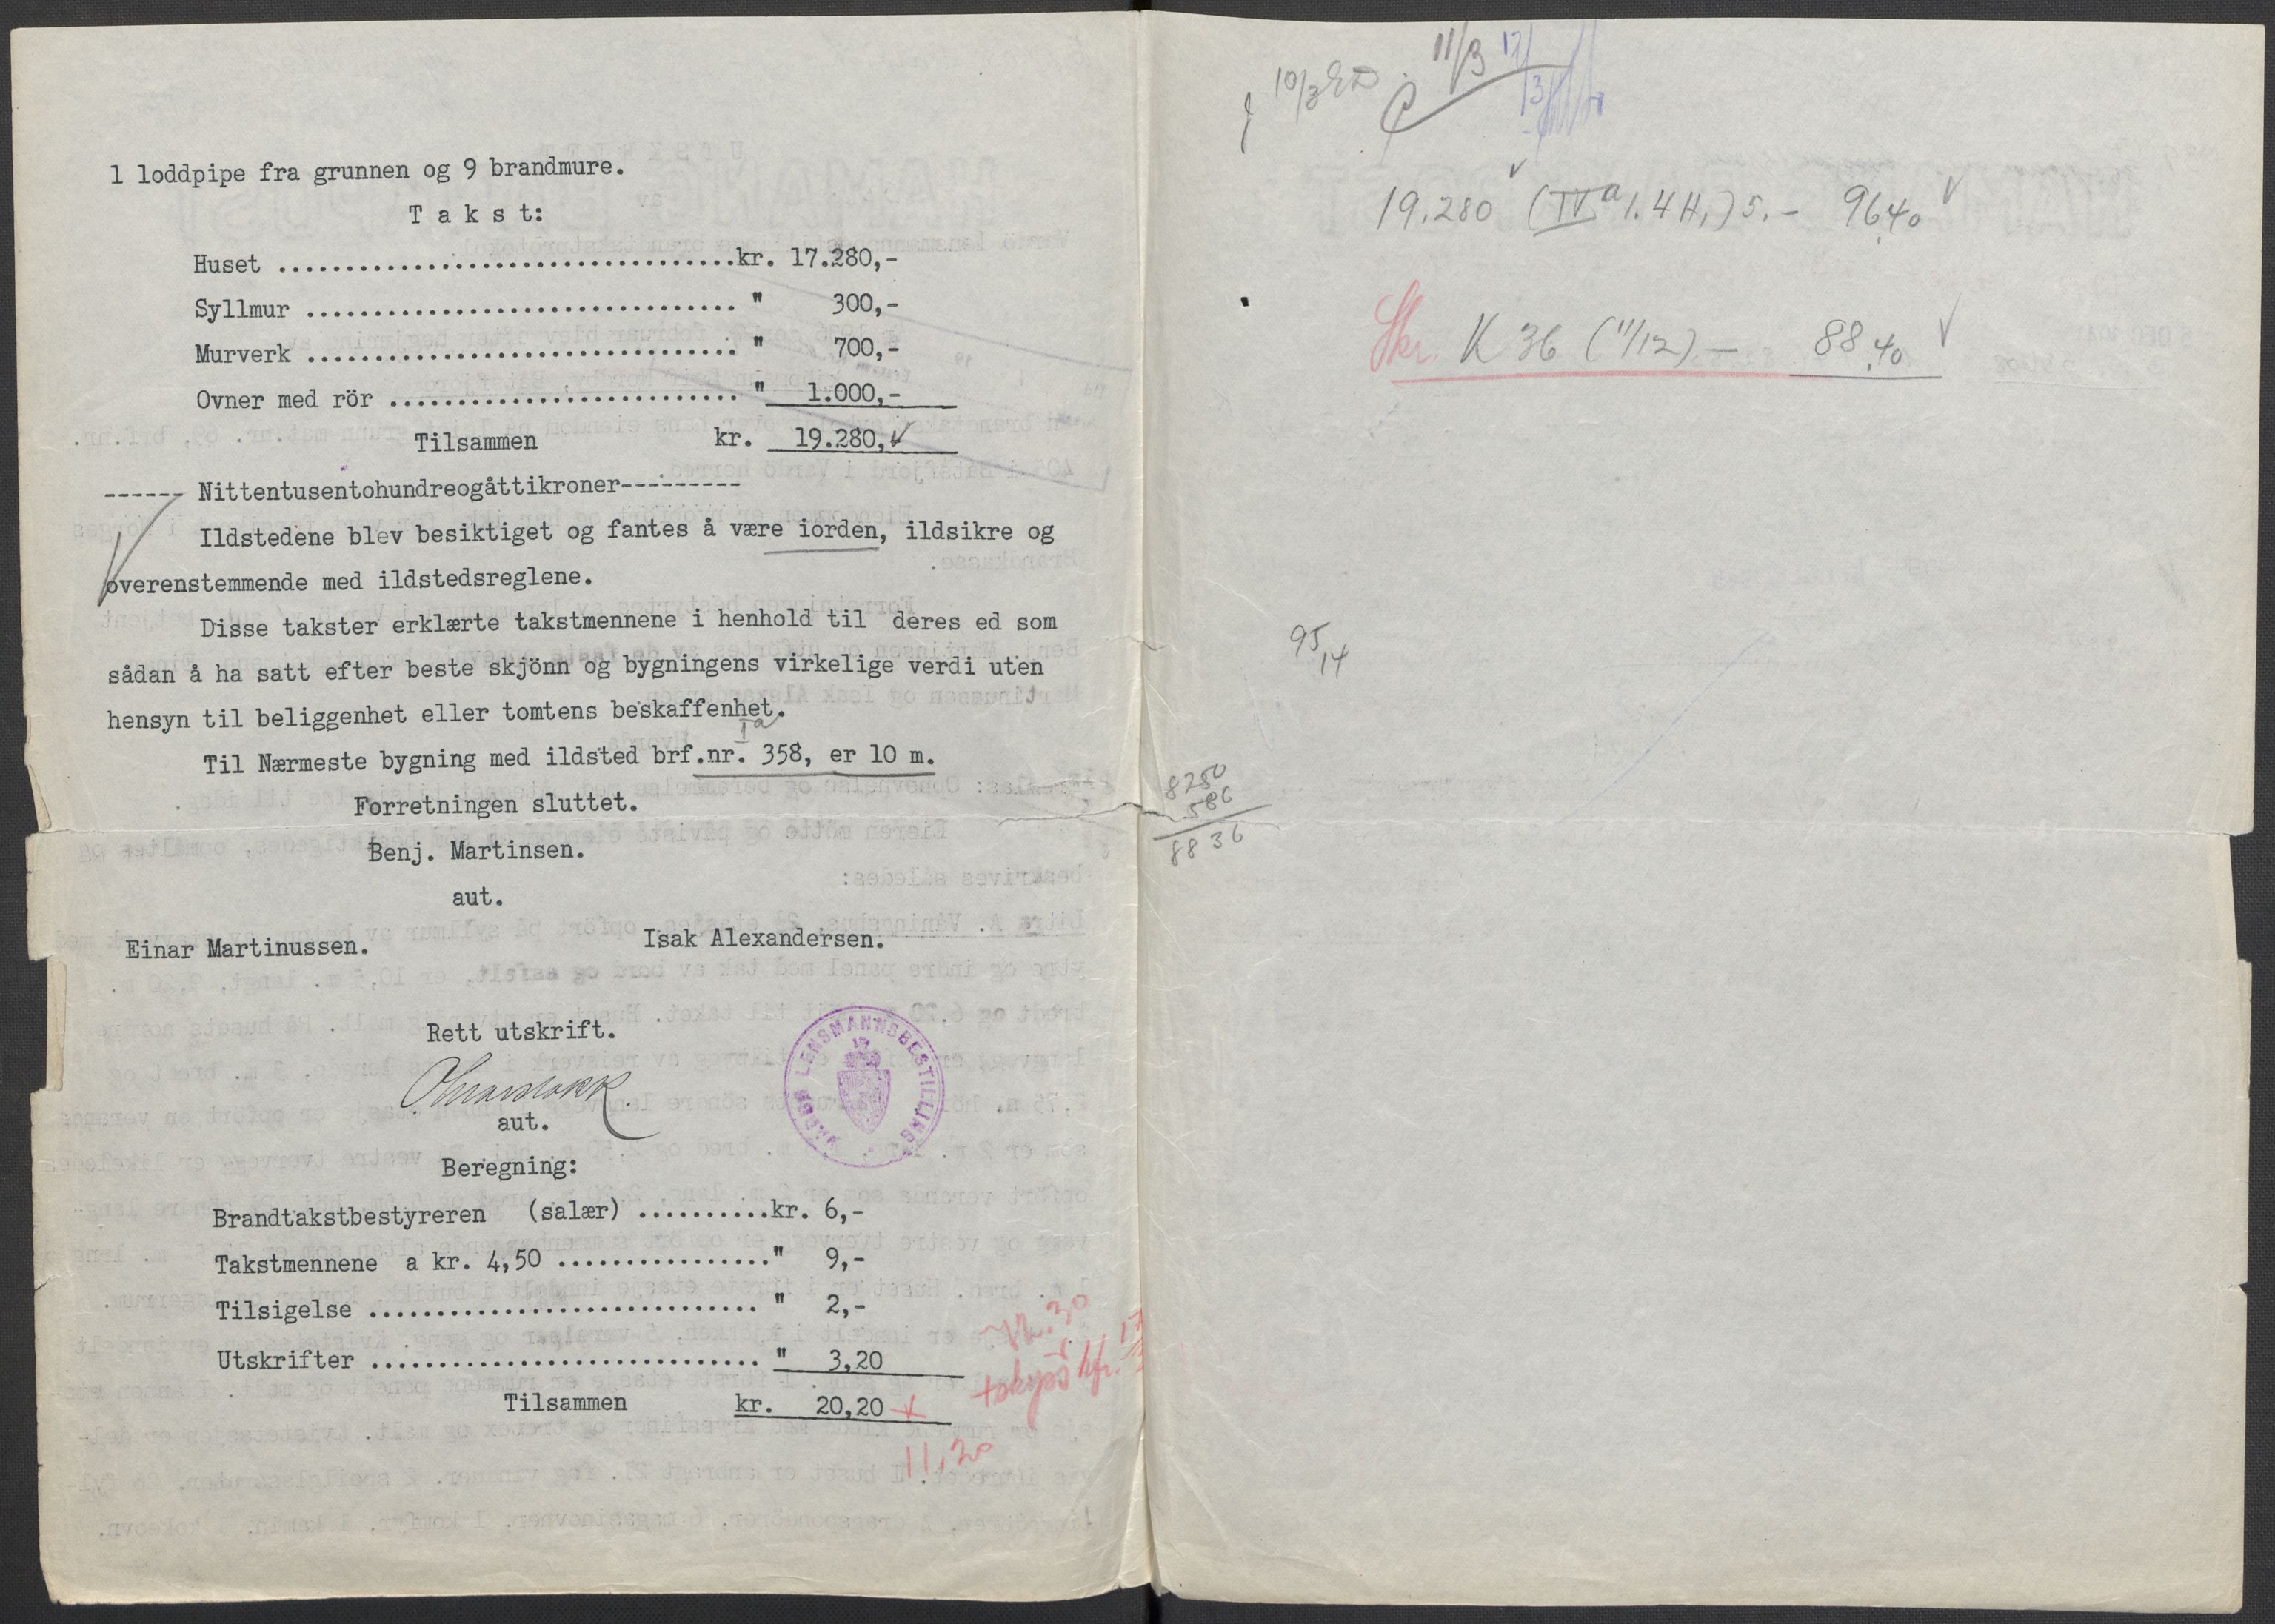 1 loddpipe fra grunnen og 9 brandmure.
T a k s t:
Huset ..................................kr. 17.280,-
Syllmur ................................ " 300,-
Murverk ................................ " 700,-
Ovner med rör .......................... " 1.000,-
Tilsammen kr. 19.280,
------ Nittentusentohundreogåttikroner---------
Ildstedene blev besiktiget og fantes å være iorden, ildsikre og
overenstemmende med ildstedsreglene.
Disse takster erklærte takstmennene i henhold til deres ed som
sådan å ha satt efter beste skjönn og bygningens virkelige verdi uten
hensyn til beliggenhet eller tomtens beskaffenhet.
Ia
Til Nærmeste bygning med ildsted brf.nr. 358, er 10 m.
Forretningen sluttet.
Benj. Martinsen.
aut.
Einar Martinussen. Isak Alexandersen.
Rett utskrift.
aut.
VARDØ LENSMANNSBESTILLING
Beregning:
Brandtakstbestyreren (salær) ..........kr. 6,-
Takstmennene a kr. 4,50 ................" 9,-
Tilsigelse ............................. " 2,-
Utskrifter ............................. " 3,20
Tilsammen kr. 20,20
11,20
10/3 11/3 17/3
19.280 (IVa 1.4 H,) 5.- 96,40
Skr. K 36 (11/12) - 88,40
95,14
8250
586
8836